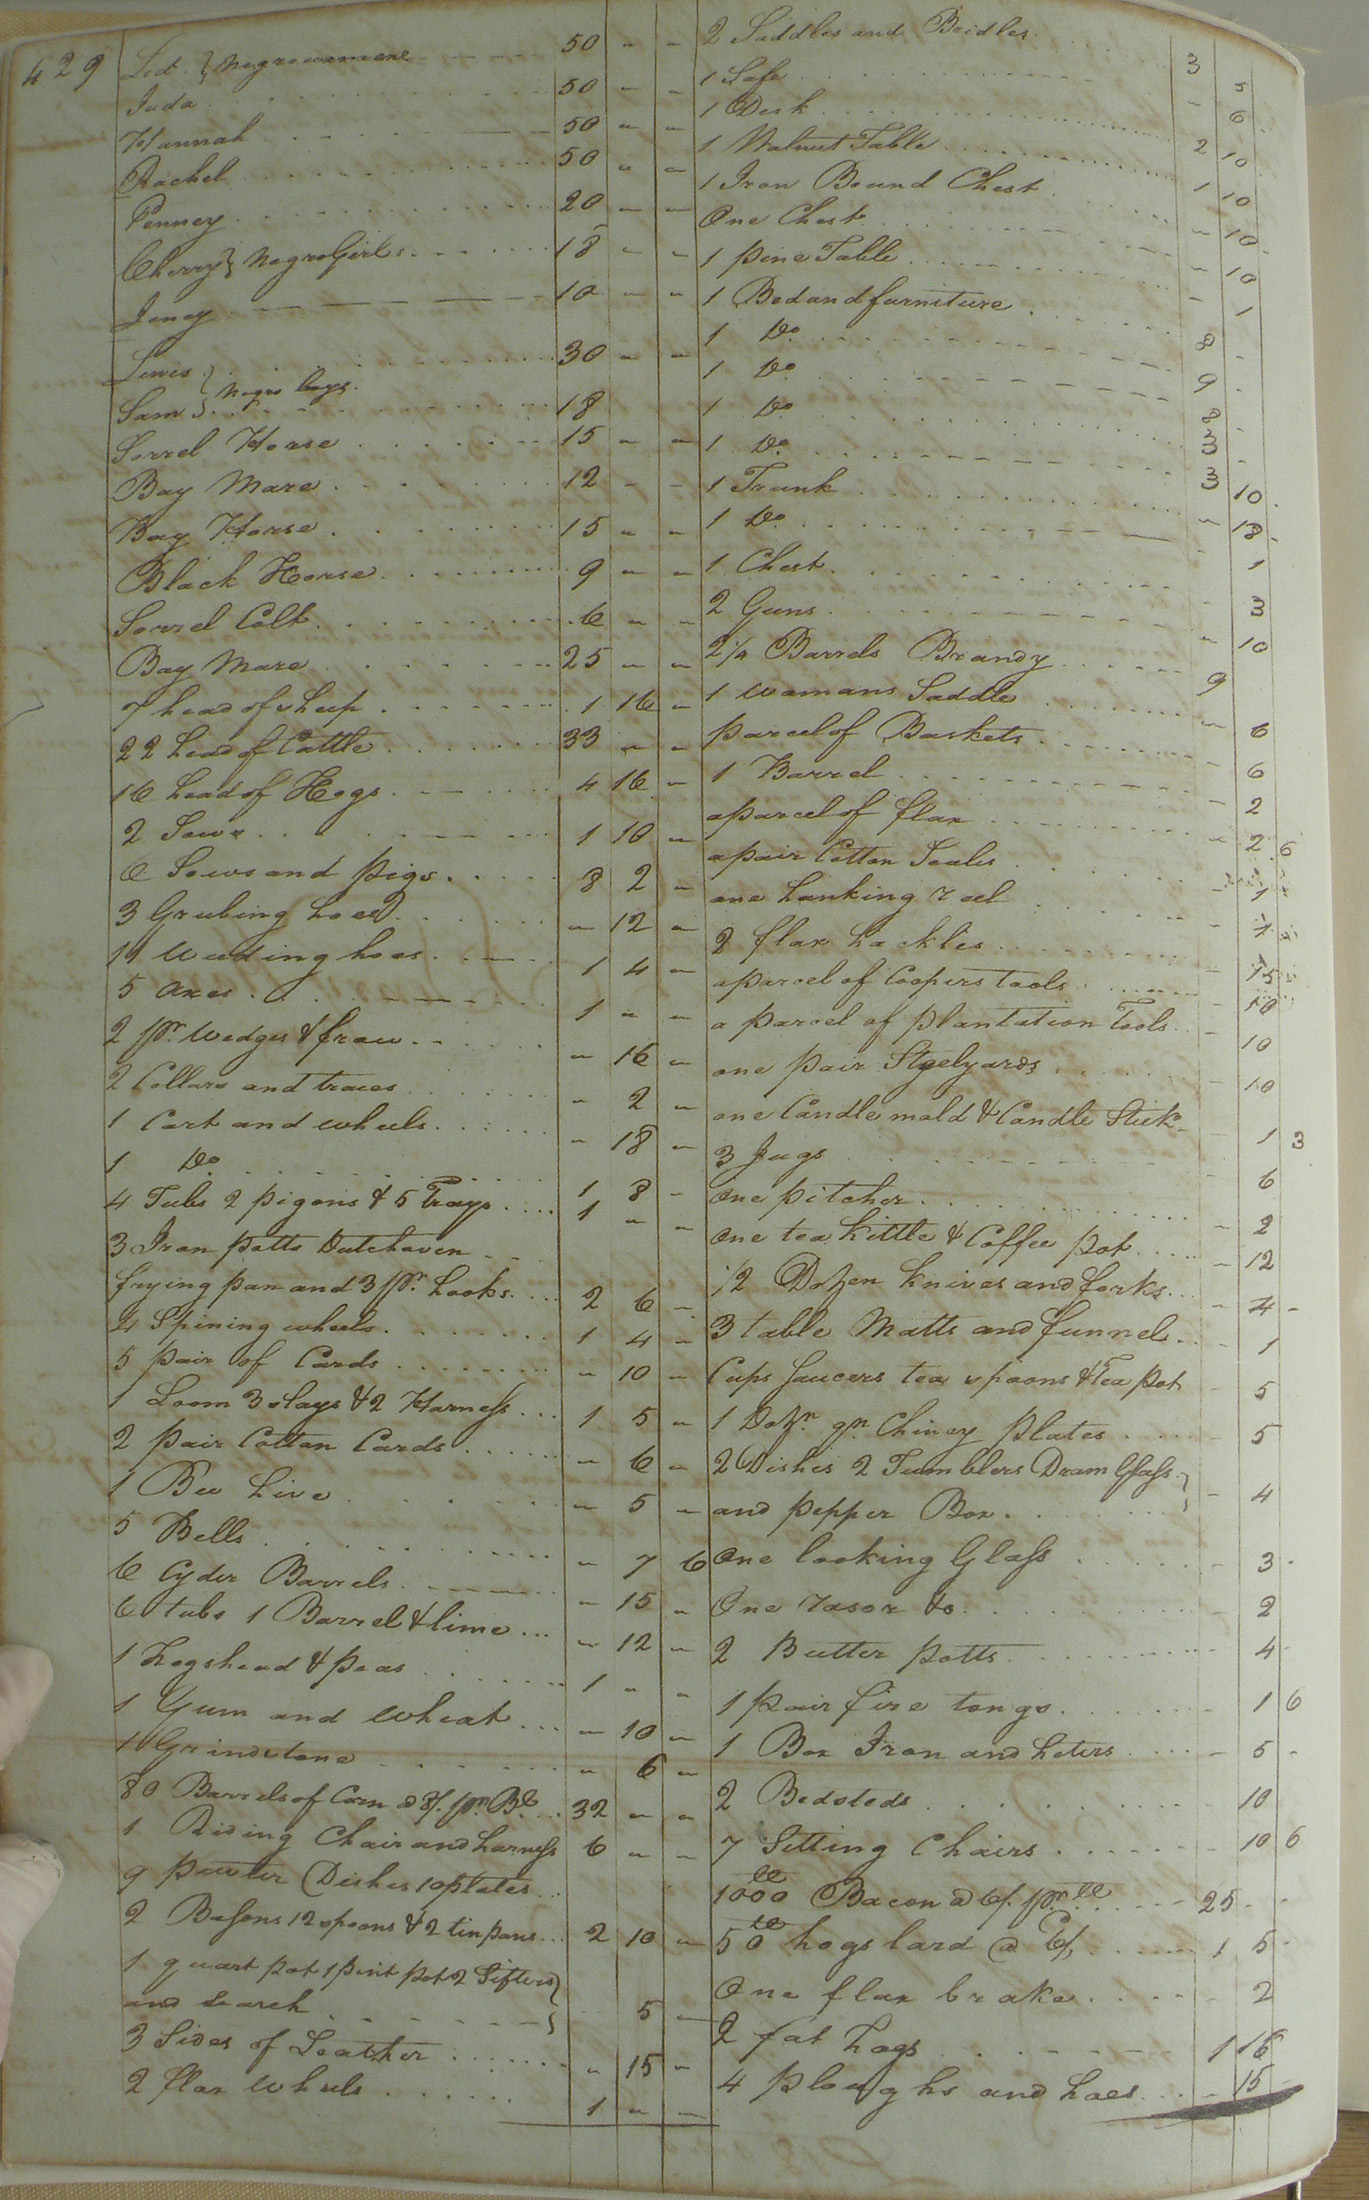 429
Let } Negro womane 50 " "
Juda 50 " "
Hannah 50 " "
Rachel 50 " "
Penney 20 " "
Cherry } Negro Girls 18 " "
Jeney 10 " "
Lewis 30 " "
Sam } Negro boys 18
Sorrel Horse 15 " "
Bay Mare 12 " "
Bay Horse 15 " "
Black Horse 9 " "
Sorrel Colt 6 " "
Bay Mare 25 " "
7 head of sheep 1 16 "
22 head of Cattle 33 " "
16 head of Hogs 4 16 "
2 Sows 1 10 "
6 Sows and pigs 8 2 "
3 Grubing hoes " 12 "
11 Weeding hoes 1 4 "
5 axes 1 " "
2 pr. Wedges & frow " 16 "
2 Collars and traces " 2 "
1 Cart and wheels " 18 "
1 Do 1 8 "
4 Tubs 2 pigons & 5 Trays 1 " "
3 Iron potts Dutchoven
frying pan and 3 pr. hooks 2 6 "
4 Spining wheels 1 4 "
5 pair of Cards " 10 "
1 Loom 3 slays & 2 Harness 1 5 "
2 pair Cotton Cards " 6 "
1 Bee hive " 5 "
5 Bells " 7 6
6 Cyder Barrels " 15 "
6 tubs 1 Barrel & lime " 12 "
1 Hogshead & peas 1 " "
1 Gum and wheat " 10 "
1 Grindstone " 6 "
80 Barrels of Corn @ 8/. pr. Bl. 32 " "
1 Riding Chair and harness 6 " "
9 pewter Dishes 10 plates
2 Basons 12 spoons & 2 tin pans 2 10 "
1 quart pot 1 pint pot 2 Sifters }
and Search } 5 "
3 Sides of Leather " 15 "
2 flax wheels 1 " "
2 Saddles and Bridles 3 5
1 Safe - 6
1 Desk 2 10
1 Walnut Table 1 10
1 Iron Bound Chest - 10
One Chest - 10
1 pine Table - 1
1 Bed and furniture 8 -
1 Do 9
1 Do 8
1 Do 3
1 Do 3 10
1 Trunk - 18
1 Do - 1
1 Chest - 3
2 Guns - 10
2 1/4 Barrels Brandy 9
1 womans Saddle - 6
parcel of Baskets - 6
1 Barrel - 2
a parcel of flax - 2 6
a pair Cotton Scales - 1
one hanking reel
2 flax hackles - 15
a parcel of Coopers tools - 10
a parcel of plantation Tools - 10
one pair Steelyards - 10
one Candle mold & Candle Stick - 1 3
3 Jugs - 6
One pitcher - 2
One tea kittle & Coffee pot - 12
1/2 Dozen knives and forks - 4 -
3 table Matts and funnel - 1
Cups Saucers tea spoons & Tea pot - 5
1 Dozn. gn Chiney plates - 5
2 Dishes 2 Tumblers Dram Glass }
and pepper Box } - 4
One looking Glass - 3
One rasor &c - 2
2 Butter potts - 4
1 pair fire tongs 1 6
1 Box Iron and heters - 5 -
2 Bedsteds - 10
7 Sitting Chairs - 10 6
1000 lb Bacon @ 6/. pr. lb 25 - -
50 lb hogs lard @ 6/. 1 5 -
One flax brake - 2
2 fat hogs 1 16
4 ploughs and hoes - 15 -